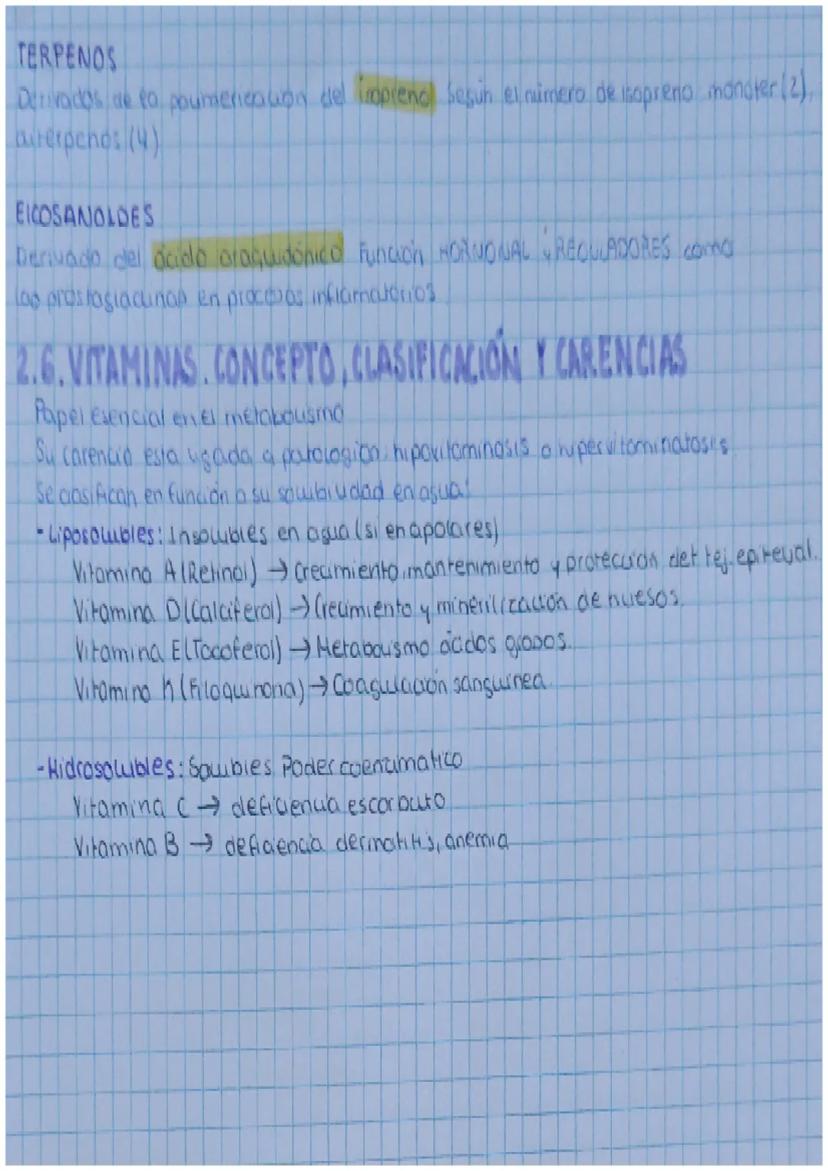 TERPENOS
Derivados de la polimerización del isopreno Según el número de isopreno monoter(2),
diterpenos (4)
EICOSANOIDES
Derivado del ácido araquidónico Función HORMONAL y REGULADORES como
las prostagladinas en procesos inflamatorios
2.6. VITAMINAS. CONCEPTO, CLASIFICACIÓN Y CARENCIAS
Papel esencial en el metabolismo
Su carencia esta ligada a patologías: hipovitaminosis o hipervitaminatosis
Se clasifican en función a su solubilidad en agua:
• Liposolubles: Insolubles en agua (si en apolares)
Vitamina A (Retinol) → Crecimiento, mantenimiento y protección del tej. epiteval.
Vitamina D (Calciferol) → Crecimiento y minerilización de huesos.
Vitamina E (Tocoferol) → Metabolismo ácidos grasos.
Vitamina K (Filoquinona) → Coagulación sanguínea
- Hidrosolubles: Solubles Poder coenzimatico
Vitamina C → deficiencia escorbuto
Vitamina B → deficiencia dermatitis, anemia